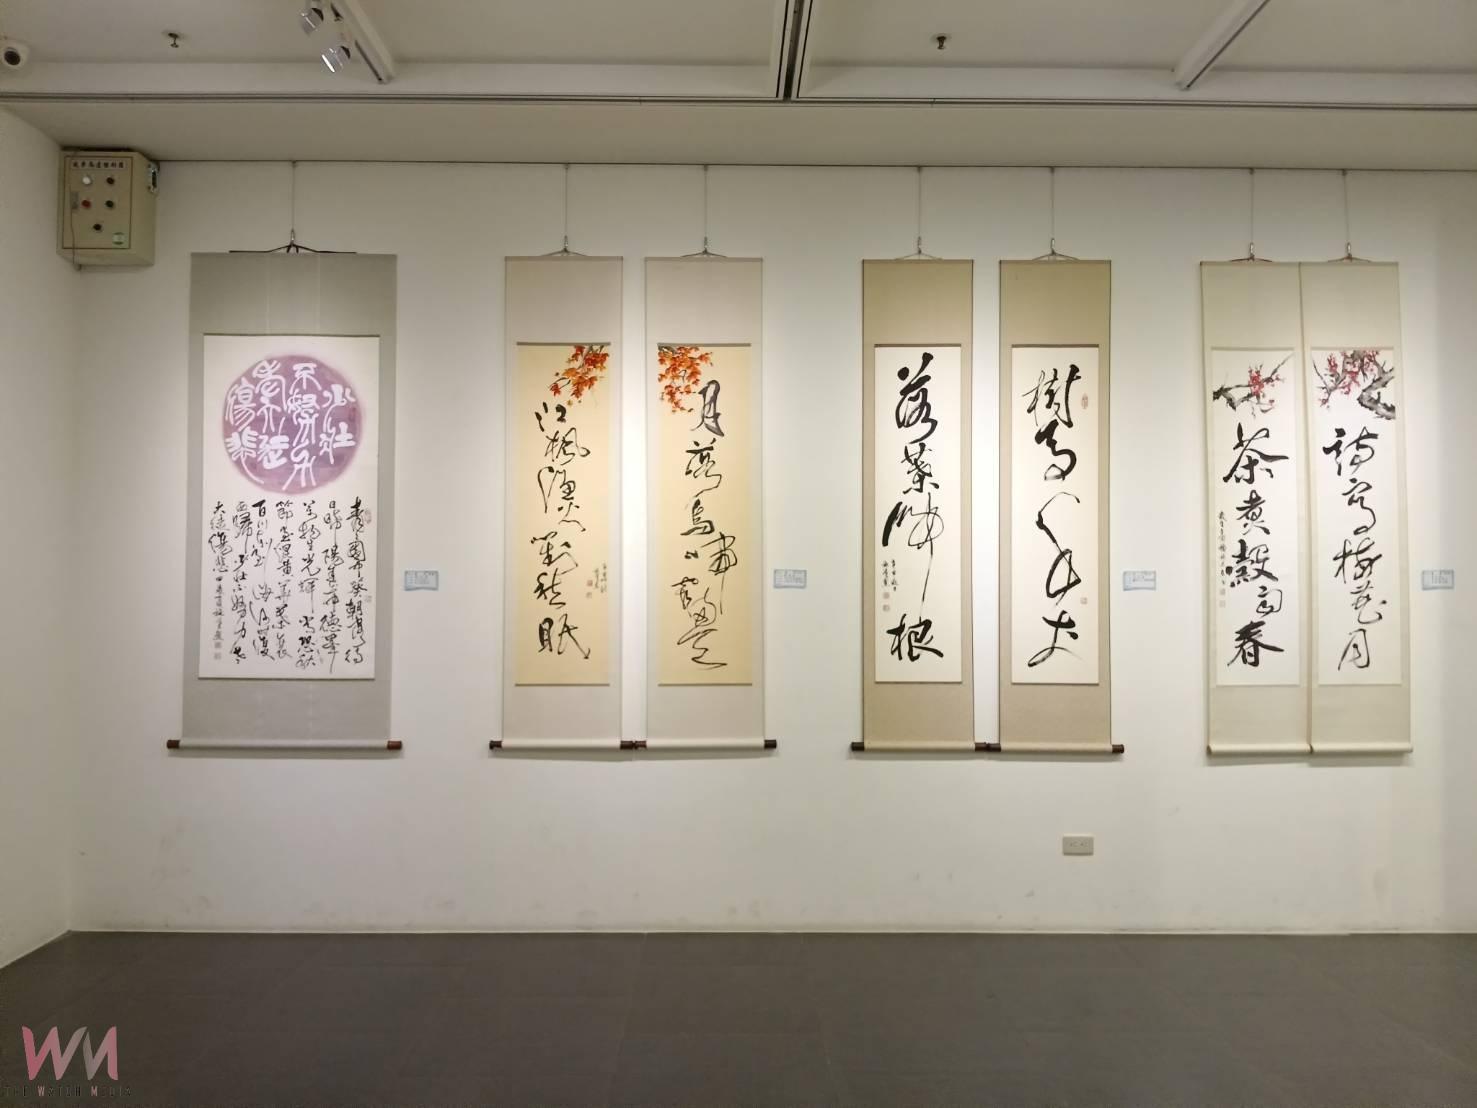 少壯
不努力
老大徒
傷悲
青青園中葵朝露待
日晞陽春布德澤
萬物生光輝常恐秋
節至焜黃華葉衰
百川東到海何時復
西歸少壯不努力老
大徒傷悲
月落烏啼霜滿天
江楓漁火對愁眠
樹高千丈
落葉歸根
詩寫梅花月
茶煮穀雨春
WM
THE WATCH MEDIA